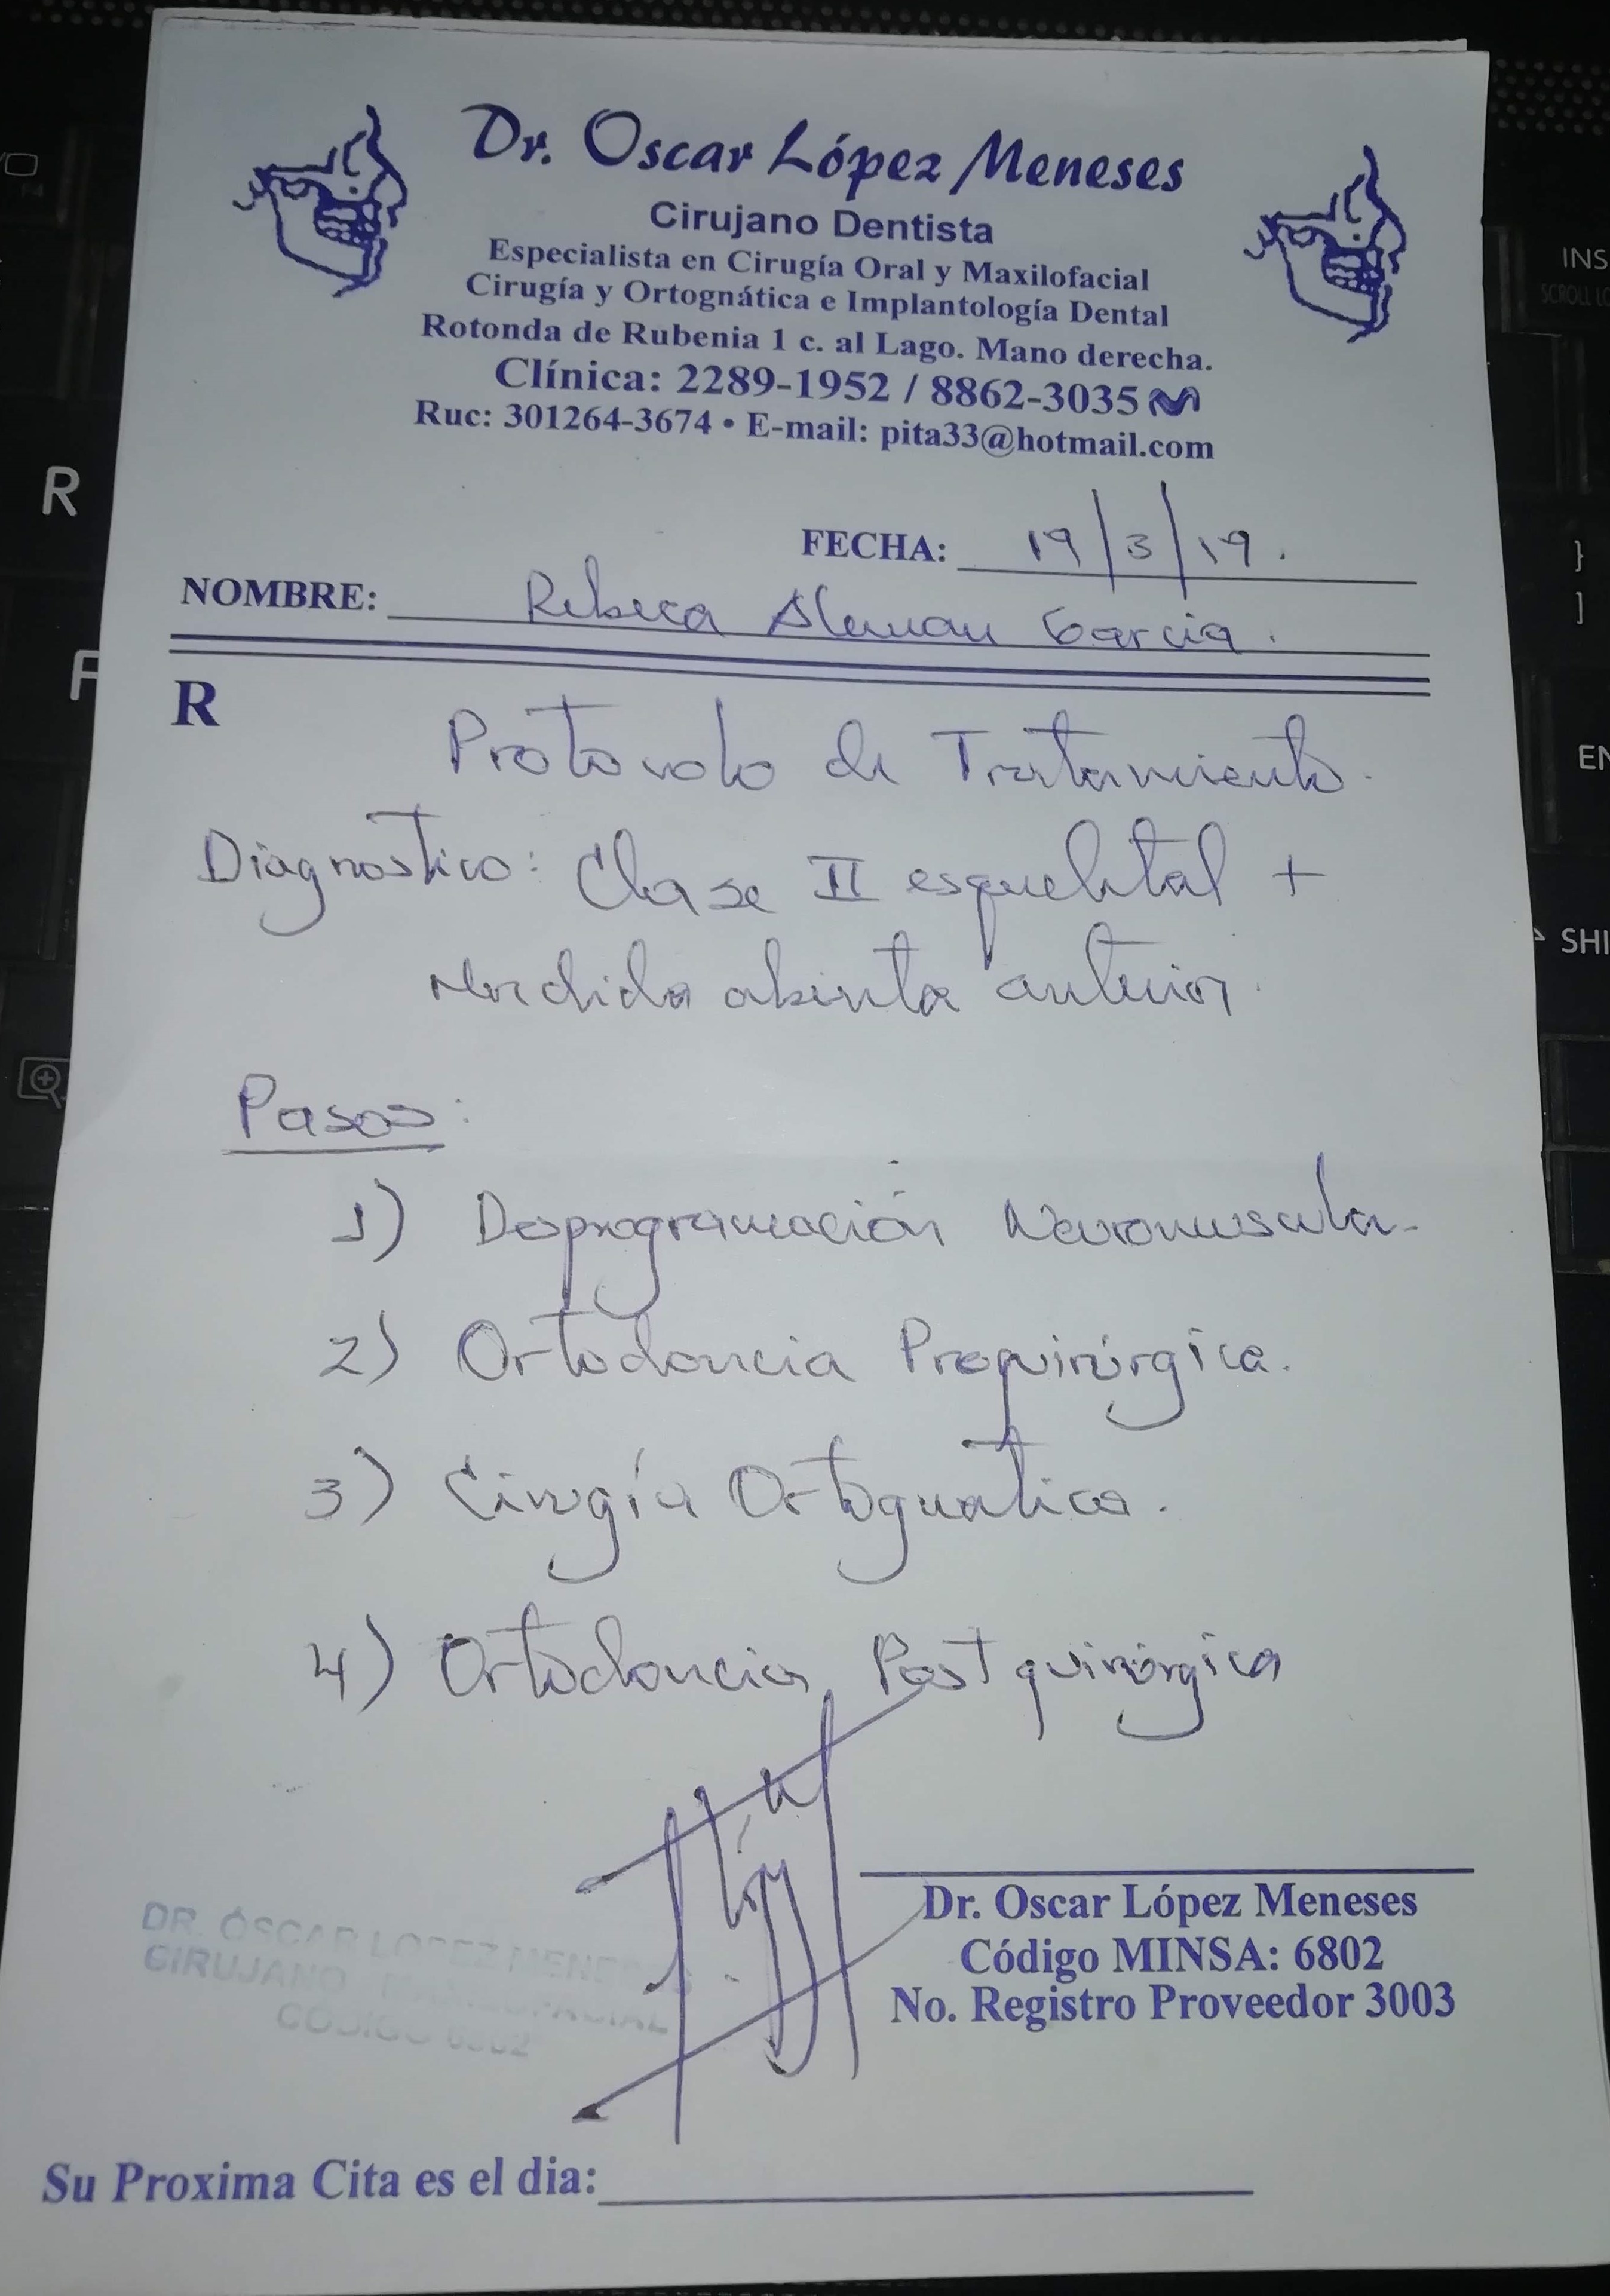 Dr. Oscar López Meneses
Cirujano Dentista
Especialista en Cirugía Oral y Maxilofacial
Cirugía y Ortognática e Implantología Dental
Rotonda de Rubenia 1 c. al Lago. Mano derecha.
Clínica: 2289-1952 / 8862-3035
Ruc: 301264-3674 • E-mail: pita33@hotmail.com
FECHA: 19/3/19.
NOMBRE: Rebeca Aleman Garcia.
R
Protocolo de Tratamiento.
Diagnostico: Clase II esqueletal +
Mordida abierta anterior.
Pasos:
1) Desprogramación Neuromuscular
2) Ortodoncia Prequirúrgica.
3) Cirugía Ortognatica.
4) Ortodoncia Postquirúrgica
Dr. Oscar López Meneses
Código MINSA: 6802
No. Registro Proveedor 3003
DR. ÓSCAR LOPEZ MENESES
CIRUJANO MAXILOFACIAL
CODIGO 6802
Su Proxima Cita es el dia:
R
F
INS
SCROLL LO
}
]
EN
SHI